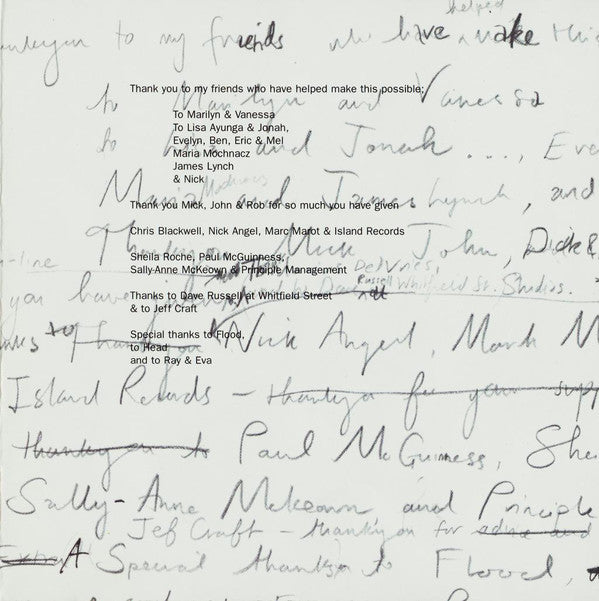 helped
thankyou to my friends who have make this
Thank you to my friends who have helped make this possible;
to Marilyn and Vanessa
To Marilyn & Vanessa
To Lisa Ayunga & Jonah,
to and Jonah ..., Eve
Evelyn, Ben, Eric & Mel
Maria Mochnacz
James Lynch
& Nick
Mochnacz
Maria and James Lynch, and
Thank you Mick, John & Rob for so much you have given
Chris Blackwell, Nick Angel, Marc Marot & Island Records
Thankyou Mick John, Dick &
Sheila Roche, Paul McGuinness,
Sally-Anne McKeown & Principle Management
-line
you have Dave Russell Whitfield St. Studios.
Thanks to Dave Russell at Whitfield Street
& to Jeff Craft
Special thanks to Flood,
to Head
and to Ray & Eva
thankyou Nick Angel, Mark M
Island Records - thankyou for your supp
thankyou to Paul McGuiness, She
Sally-Anne Mckeown and Principle
Jef Craft - thankyou for
A Special thanks to Flood,